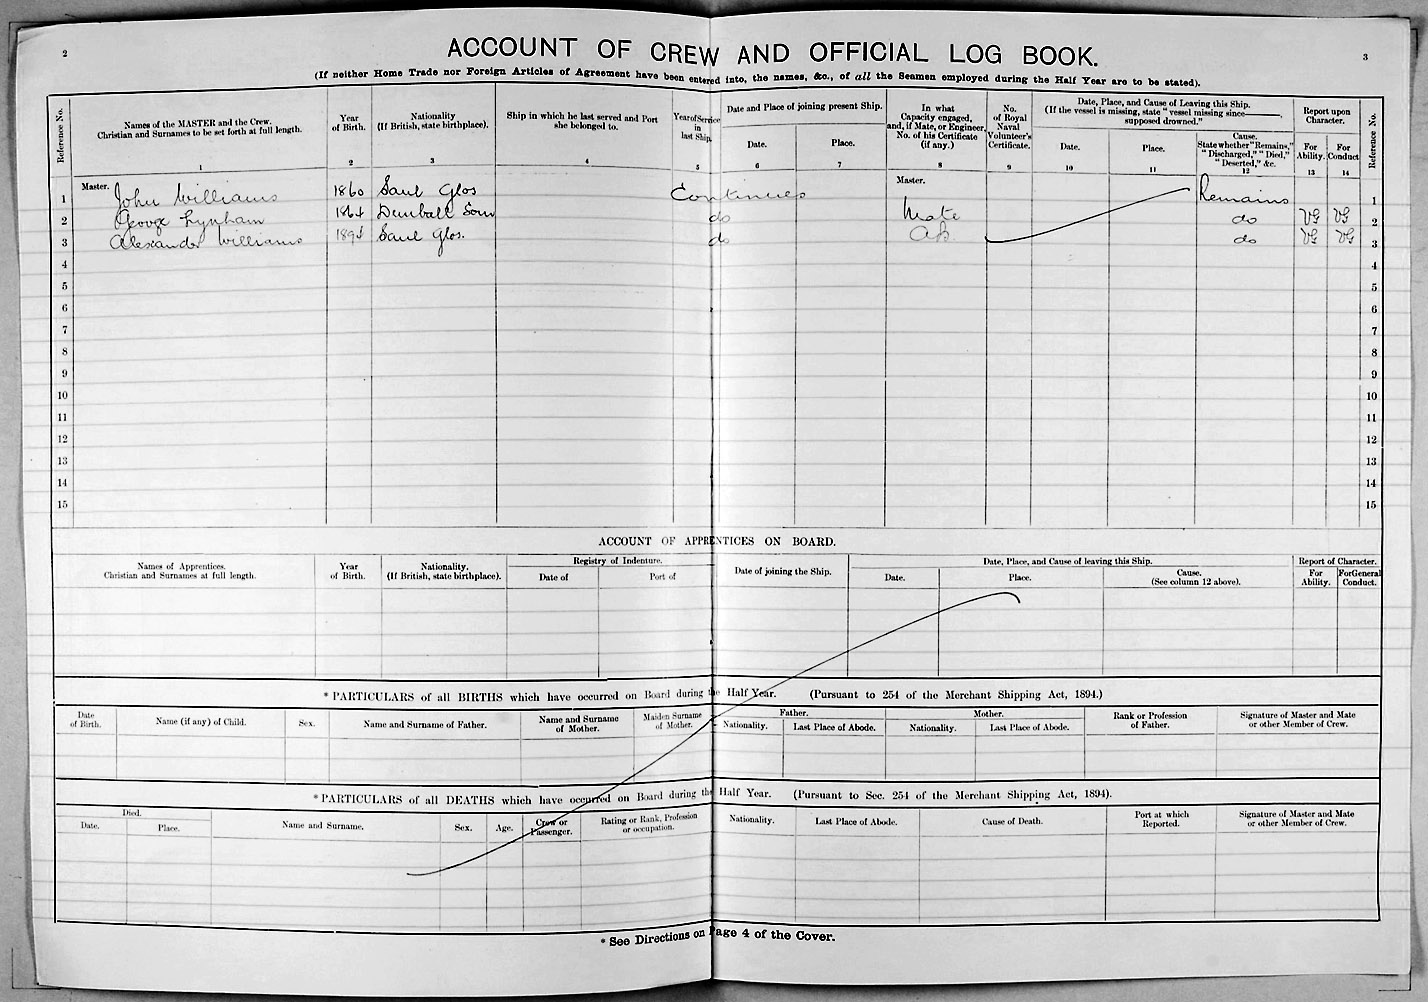 2
3
ACCOUNT OF CREW AND OFFICIAL LOG BOOK.
(If neither Home Trade nor Foreign Articles of Agreement have been entered into, the names, &c., of all the Seamen employed during the Half Year are to be stated).
Reference No.
Names of the MASTER and the Crew.
Christian and Surnames to be set forth at full length.
1
Year
of Birth.
2
Nationality
(If British, state birthplace).
3
Ship in which he last served and Port
she belonged to.
4
Year of Service
in
last Ship.
5
Date and Place of joining present Ship.
Date.
6
Place.
7
In what
Capacity engaged,
and, if Mate, or Engineer,
No. of his Certificate
(if any.)
8
No.
of Royal
Naval
Volunteer's
Certificate.
9
Date, Place, and Cause of Leaving this Ship.
(If the vessel is missing, state "vessel missing since———,
supposed drowned."
Date.
10
Place.
11
Cause.
State whether "Remains,"
"Discharged," "Died,"
"Deserted," &c.
12
Report upon
Character.
For
Ability.
13
For
Conduct
14
Reference No.
1 Master. John Williams 1860 Saul Glos Continues Master. Remains 1
2 George Lynham 1864 Dunball Som do Mate do VG VG 2
3 Alexander Williams 1894 Saul Glos. do AB. do VG VG 3
4 4
5 5
6 6
7 7
8 8
9 9
10 10
11 11
12 12
13 13
14 14
15 15
ACCOUNT OF APPRENTICES ON BOARD.
Names of Apprentices.
Christian and Surnames at full length.
Year
of Birth.
Nationality.
(If British, state birthplace).
Registry of Indenture.
Date of
Port of
Date of joining the Ship.
Date, Place, and Cause of leaving this Ship.
Date.
Place.
Cause.
(See column 12 above).
Report of Character.
For
Ability.
For General
Conduct.
* PARTICULARS of all BIRTHS which have occurred on Board during the Half Year. (Pursuant to 254 of the Merchant Shipping Act, 1894.)
Date
of Birth.
Name (if any) of Child.
Sex.
Name and Surname of Father.
Name and Surname
of Mother.
Maiden Surname
of Mother.
Father.
Nationality.
Last Place of Abode.
Mother.
Nationality.
Last Place of Abode.
Rank or Profession
of Father.
Signature of Master and Mate
or other Member of Crew.
* PARTICULARS of all DEATHS which have occurred on Board during the Half Year. (Pursuant to Sec. 254 of the Merchant Shipping Act, 1894).
Died.
Date.
Place.
Name and Surname.
Sex.
Age.
Crew or
Passenger.
Rating or Rank, Profession
or occupation.
Nationality.
Last Place of Abode.
Cause of Death.
Port at which
Reported.
Signature of Master and Mate
or other Member of Crew.
* See Directions on Page 4 of the Cover.